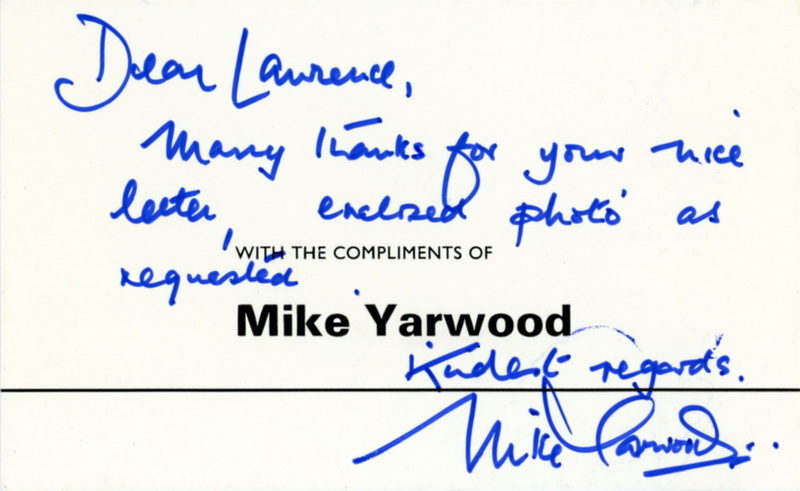 Dear Lawrence,
Many thanks for your nice
letter, enclosed photo as
WITH THE COMPLIMENTS OF
requested.
Mike Yarwood
Kindest regards.
Mike Yarwood..